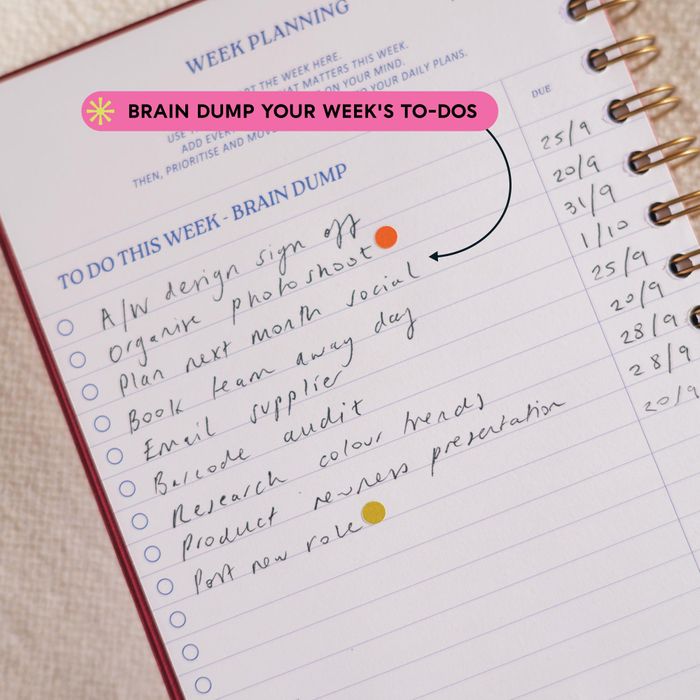 WEEK PLANNING
THE WEEK HERE.
USE MATTERS THIS WEEK.
ADD ON YOUR MIND.
THEN, PRIORITISE AND YOUR DAILY PLANS.
BRAIN DUMP YOUR WEEK'S TO-DOS
TO DO THIS WEEK - BRAIN DUMP DUE
A/W design sign off 25/9
Organise photoshoot 20/9
Plan next month social 31/9
Book team away day 1/10
Email supplier 25/9
Barcode audit 20/9
Research colour trends 28/9
Product newness presentation 28/9
Post new role 20/9